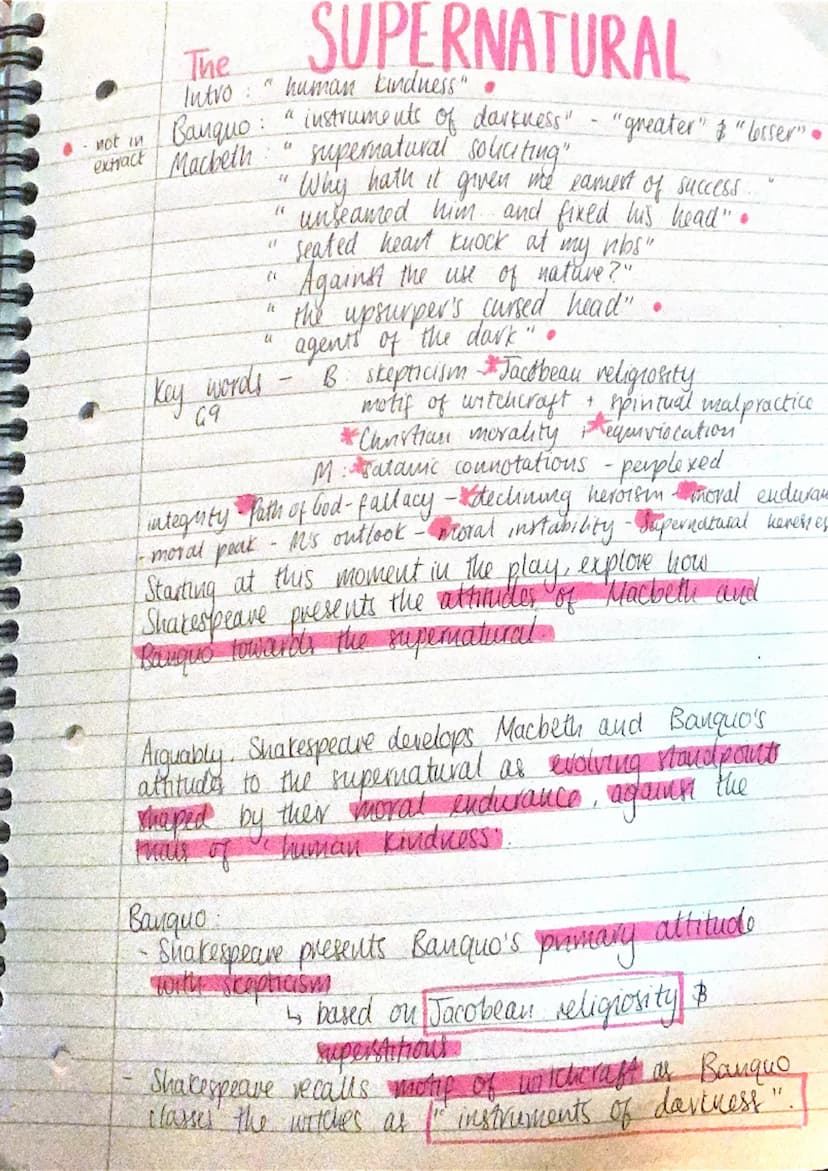 The SUPERNATURAL
Intro : " human kindness" •
Banquo : " instruments of darkness" - "greater" & "lesser" •
• - not in extract
Macbeth : " supernatural soliciting"
" Why hath it given me earnest of success ... "
" unseamed him... and fixed his head" •
" seated heart knock at my ribs"
" Against the use of nature?"
" the upsurper's cursed head" •
" agents of the dark" •
Key words - B : skepticism - *Jacobean religiosity
G9 motif of witchcraft + spiritual malpractice
*Christian morality + *equivocation
M : *Satanic connotations - perplexed
integrity - Path of God - fallacy - *declining heroism - moral enduran
- moral peak - M's outlook - moral instability - supernatural heresies
Starting at this moment in the play, explore how
Shakespeare presents the attitudes of Macbeth and
Banquo towards the supernatural.
Arguably, Shakespeare develops Macbeth and Banquo's
attitudes to the supernatural as evolving standpoints
shaped by their moral endurance, against the
trials of " human kindness".
Banquo :
- Shakespeare presents Banquo's primary attitude
with skepticism
↳ based on Jacobean religiosity &
superstitious.
- Shakespeare recalls motif of witchcraft as Banquo
classes the witches as "instruments of darkness".